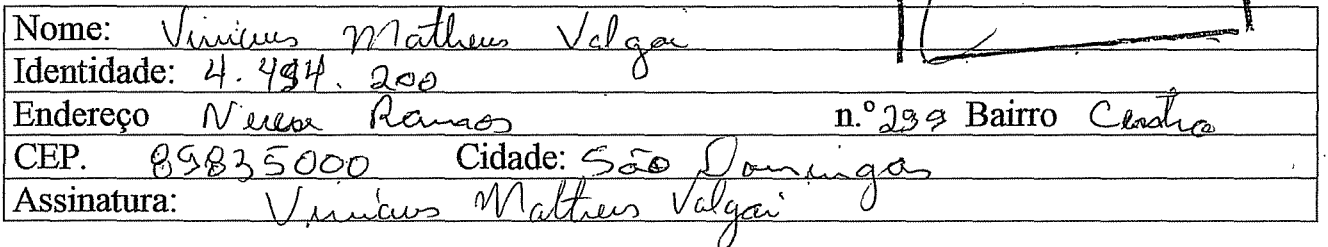 Nome: Vinicius Matheus Valgoi
Identidade: 4.494.200
Endereço Nereu Ramos n.º 299 Bairro Centro
CEP. 89835000 Cidade: São Domingos
Assinatura: Vinicius Matheus Valgoi